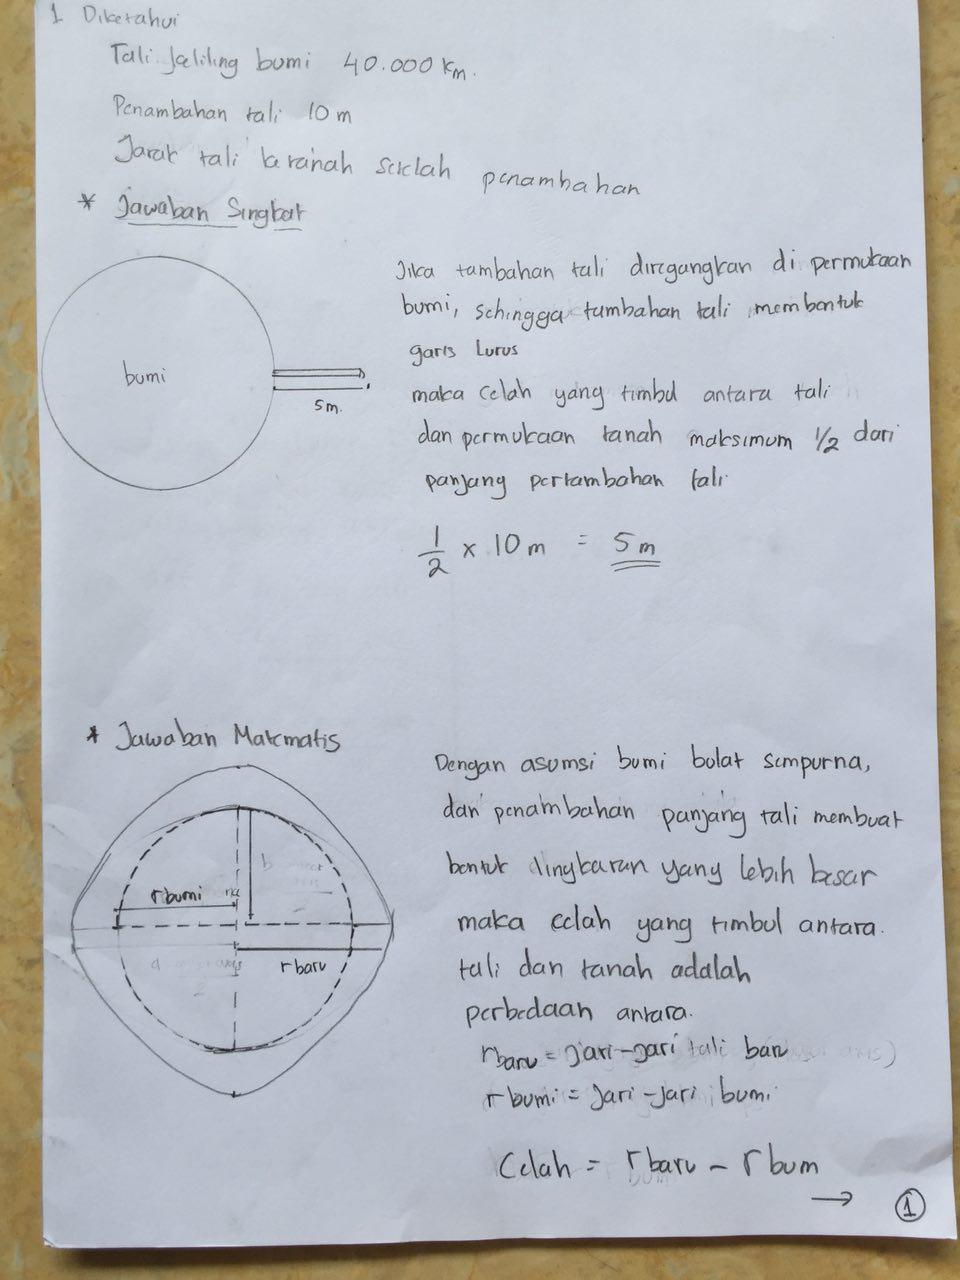 1 Diketahui
Tali Jaliling bumi 40.000 km.
Penambahan tali 10 m
Jarak tali ke tanah setelah penambahan
* Jawaban Singkat
Jika tambahan tali diregangkan di permukaan
bumi, sehingga tambahan tali membentuk
garis Lurus
bumi
5m.
maka Celah yang timbul antara tali
dan permukaan tanah maksimum 1/2 dari
panjang pertambahan tali
1/2 x 10 m = 5 m
* Jawaban Matematis
Dengan asumsi bumi bulat sempurna,
dan penambahan panjang tali membuat
bentuk lingkaran yang lebih besar
maka celah yang timbul antara
tali dan tanah adalah
perbedaan antara.
r bumi
b
a
r baru
r baru = jari-jari tali baru
r bumi = Jari-jari bumi
Celah = r baru - r bum
→ 1